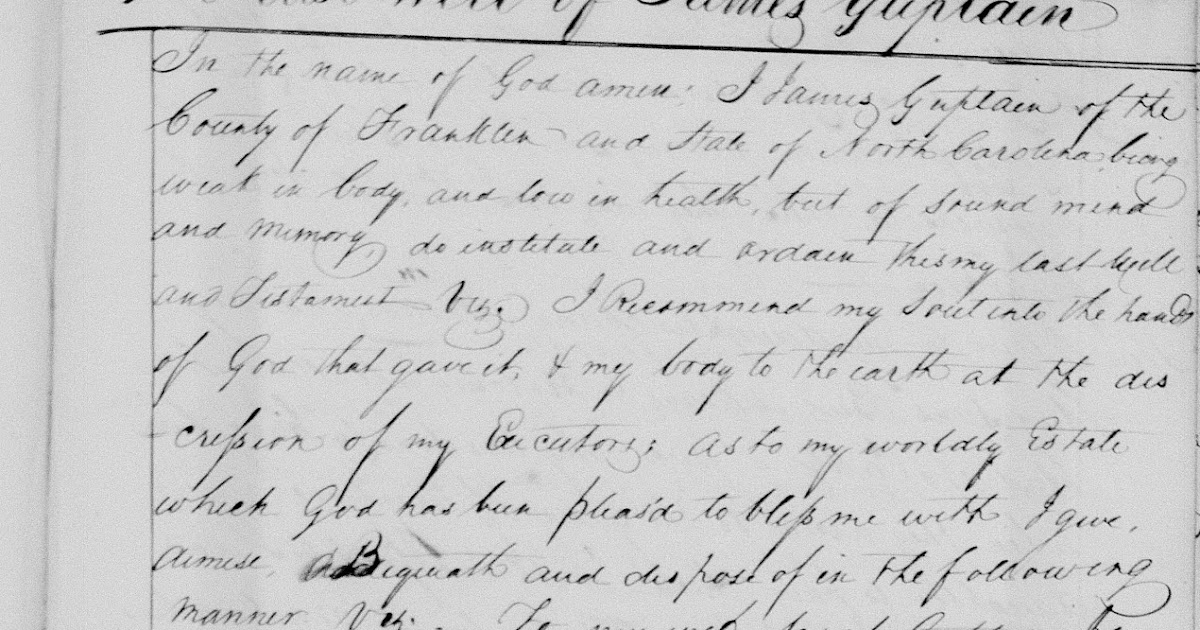 Last Will of James Guptain
In the name of God amen: I James Guptain of the
County of Franklin and State of North Carolina being
weak in body, and low in health, but of sound mind
and memory, do institute and ordain this my last Will
and Testament Viz. I Recommend my Soul into the hands
of God that gave it, & my body to the earth at the dis
creſsion of my Executors; as to my worldly Estate
which God has been pleas'd to bleſs me with I give,
demise, Bequeath and dispose of in the following
manner Viz. To my